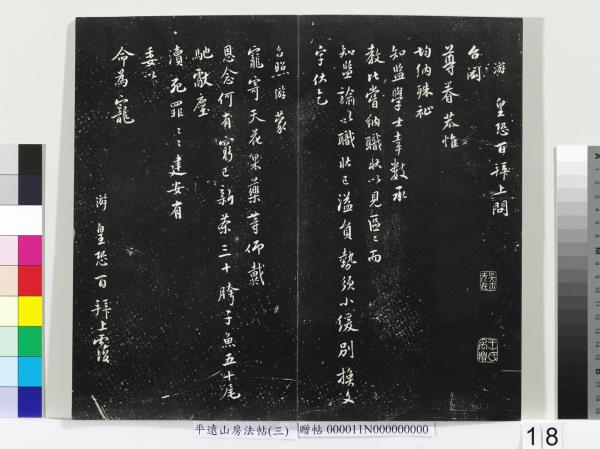 游 皇恐百拜上問
台閫
尊眷恭惟
均納殊祉
知監學士幸數承
教比嘗納職狀以見區〻而
知監諭以職狀已溢員勢須小緩別換文
字伏乞
台照游蒙
寵寄天花果藥等仰戴
恩念何有窮已新茶三十胯子魚五十尾
馳獻塵
瀆死罪〻〻建安有
委以
命為寵
游 皇恐百拜上覆
平遠山房法帖(三) 贈帖 000011N000000000
18